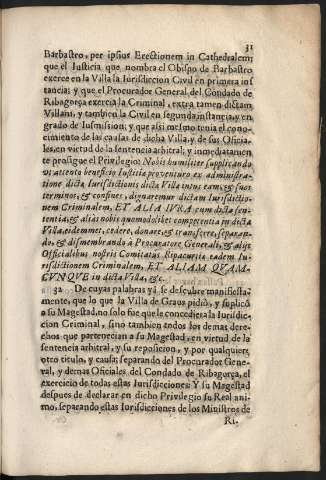 31
Barbastro, per ipsius Erectionem in Cathedralem:
que el Iusticia que nombra el Obispo de Barbastro
exerce en la Villa la Iurisdiccion Civil en primera ins
tancia; y que el Procurador General del Condado de
Ribagorça exercia la Criminal, extra tamen dictam
Villam, y tambien la Civil en segunda instancia, y en
grado de Iusmission; y que assi mesmo tenia el cono-
cimiento de las causas de dicha Villa, y de sus Oficia-
les, en virtud de la sentencia arbitral; y inmediatamen
te prosigue el Privilegio: Nobis humiliter supplicando
ut attento beneficio Iustitiæ proventuro ex administra-
tione dictæ Iurisdictionis dictæ Villæ intus eam, & suos
terminos, & confines, dignaremur dictam Iurisdictio-
nem Criminalem, ET ALIA IVRA cum dicta sen-
tentia, & alias nobis quomodolibet competentia in dicta
Villa, eidemmet, cedere, donare, & transferre, separan-
do, & dismembrando à Procuratore Generali, & alijs
Officialibus nostri Comitatus Ripacurtiæ eadem Iu-
risdictionem Criminalem, ET ALIAM QVAM-
CVNQVE in dicta Villa, &c.
32 De cuyas palabras yà se descubre manifiesta-
mente, que lo que la Villa de Graus pidiò, y suplicò
a su Magestad, no solo fue que le concediera la Iurisdic-
cion Criminal, sino tambien todos los demas dere-
chos que pertenecian a su Magestad, en virtud de la
sentencia arbitral, y su reposicion, y por qualquiere
otro titulo, y causa; separando del Procurador Gene-
ral, y demas Oficiales del Condado de Ribagorça, el
exercicio de todas estas Iurisdicciones: Y su Magestad
despues de declarar en dicho Privilegio su Real ani-
mo, separando estas Iurisdicciones de los Ministros de
Ri-